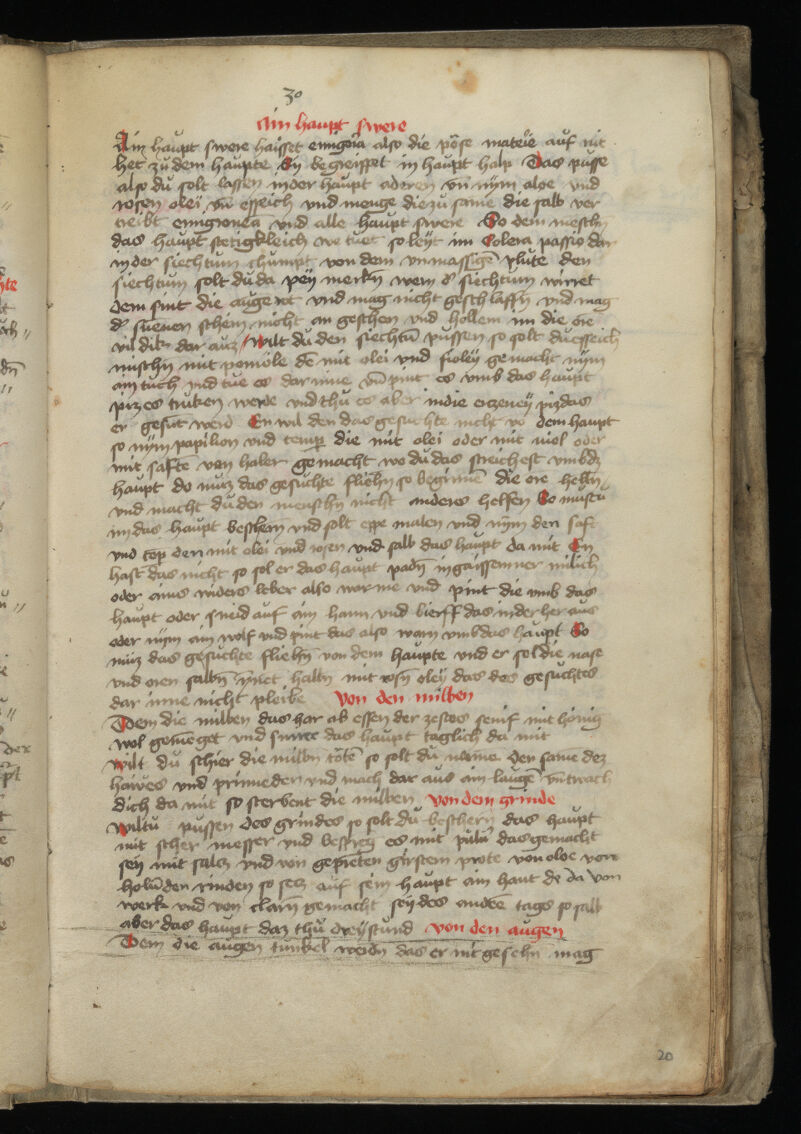 30
Ain haupt swere
Ain haupt swere haisset emigoia also die pöse materie auf rit
het zu dem haupte Sy begreiffet in haupt halp Das pusse
also du solt lassen in der haupt aderen vñ nym aloe vnd
rosen olei vñ esseich vnd menge die zu same die salb ver
treibt emigronea vnd alle haupt swere So dem mēschn
das haupt stetigkleich we tuet so leyt im Colera passio dar
in der siechtum chumpt von dem vnmassigē plute den
siechtum solt du da pey merkn wem dr siechtum wirret
dem sint die auge rot vnd mag nicht geschlaffn vnd mag
dr sunnen schein nicht an gesehen vnd hollem im die ore
vñ dik dar aus Wilt du den siechtū pussen so solt du esseich
mischn mit pomöle dē mit olei vnd fioley gemacht nym
ain tuch vnd tue es dar inne vñ pint es vmb das haupt
piz es truken werde vnd thu es aber in die erzeney piz das
er gesut werd En wil den das gesuchte nicht vō dem haupt
so nym papilion vnd temp die mit olei oder mit viol oder
mit safte von holer gemacht wo du das streichest vmb dz
haupt do muz das gesuchte fliehn so beginnē die ore helln
vnd macht du den menschn nicht anders helfen So mustu
im das haupt beschern vnd solt eppe malen vnd nym den saft
vnd tēp den mit olei vnd rosen vnd salb das haupt da mit En
hast das nicht so sol er das haupt padn in gaissenner milich
oder ains widers leber also warme vnd pint die vmb das
haupt oder sneid auf ain hann vnd bierff das in der her aus
oder nym ain wolf vnd pint das also warm vmb das haupt So
muz das gesuchte fliehn von dem haupte vnd er sol die nase
vnd oren salbn ynnet halbn mit rosn oley das des gesuchtes
dar inne nicht pleibe Von den milben
Dem die milben das har ab essen der zestos senif mit honig
wol gemēget vnd smire das haupt taglich da mit
Wilt du schier die milbn tötē so solt du neme den same dez
hawes vnd prinne den vnd mach dar aus ain lauge vñ twach
dich da mit so sterbent die milben von dem grinde
Wiltu pussen des grindes so solt du beschern das haupt
mit scher messer vnd bestreich es mit das gemacht
sey mit salcz vnd von gepieten girstem prote von aloe von
holūder rinden so secz auf sein haupt ain haut de da von
werk vnd von clarn gemacht sey des andre tags so salb
aber das haupt daz thu dreystund von den augen
Dem die augen tunkel werdn das er nit gesehn mag
20